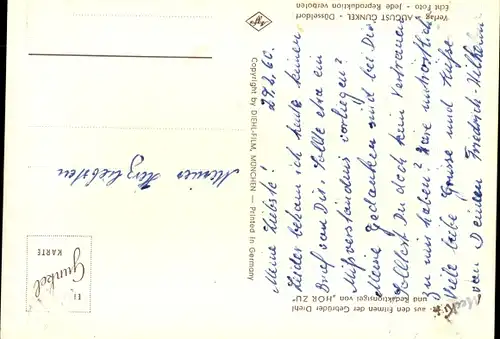 Meine Liebste! 29.2.60.
Leider bekam ich heute keinen
Brief von Dir. Sollte etwa ein
Mißverständnis vorliegen?
Meine Gedanken sind bei Dir.
Solltest Du doch kein Vertrauen
zu mir haben? Wäre
Viele liebe Grüße und Küsse
von Deinem Friedrich-Wilhelm
Meiner Herzliebsten
aus den Filmen der Gebrüder Diehl
und Redaktionsigel von „HÖR ZU“
Copyright by DIEHL-FILM, MÜNCHEN — Printed in Germany
Verlag AUGUST GUNKEL - Düsseldorf
Echt Foto - Jede Reproduktion verboten
Agfa
Gunkel
KARTE